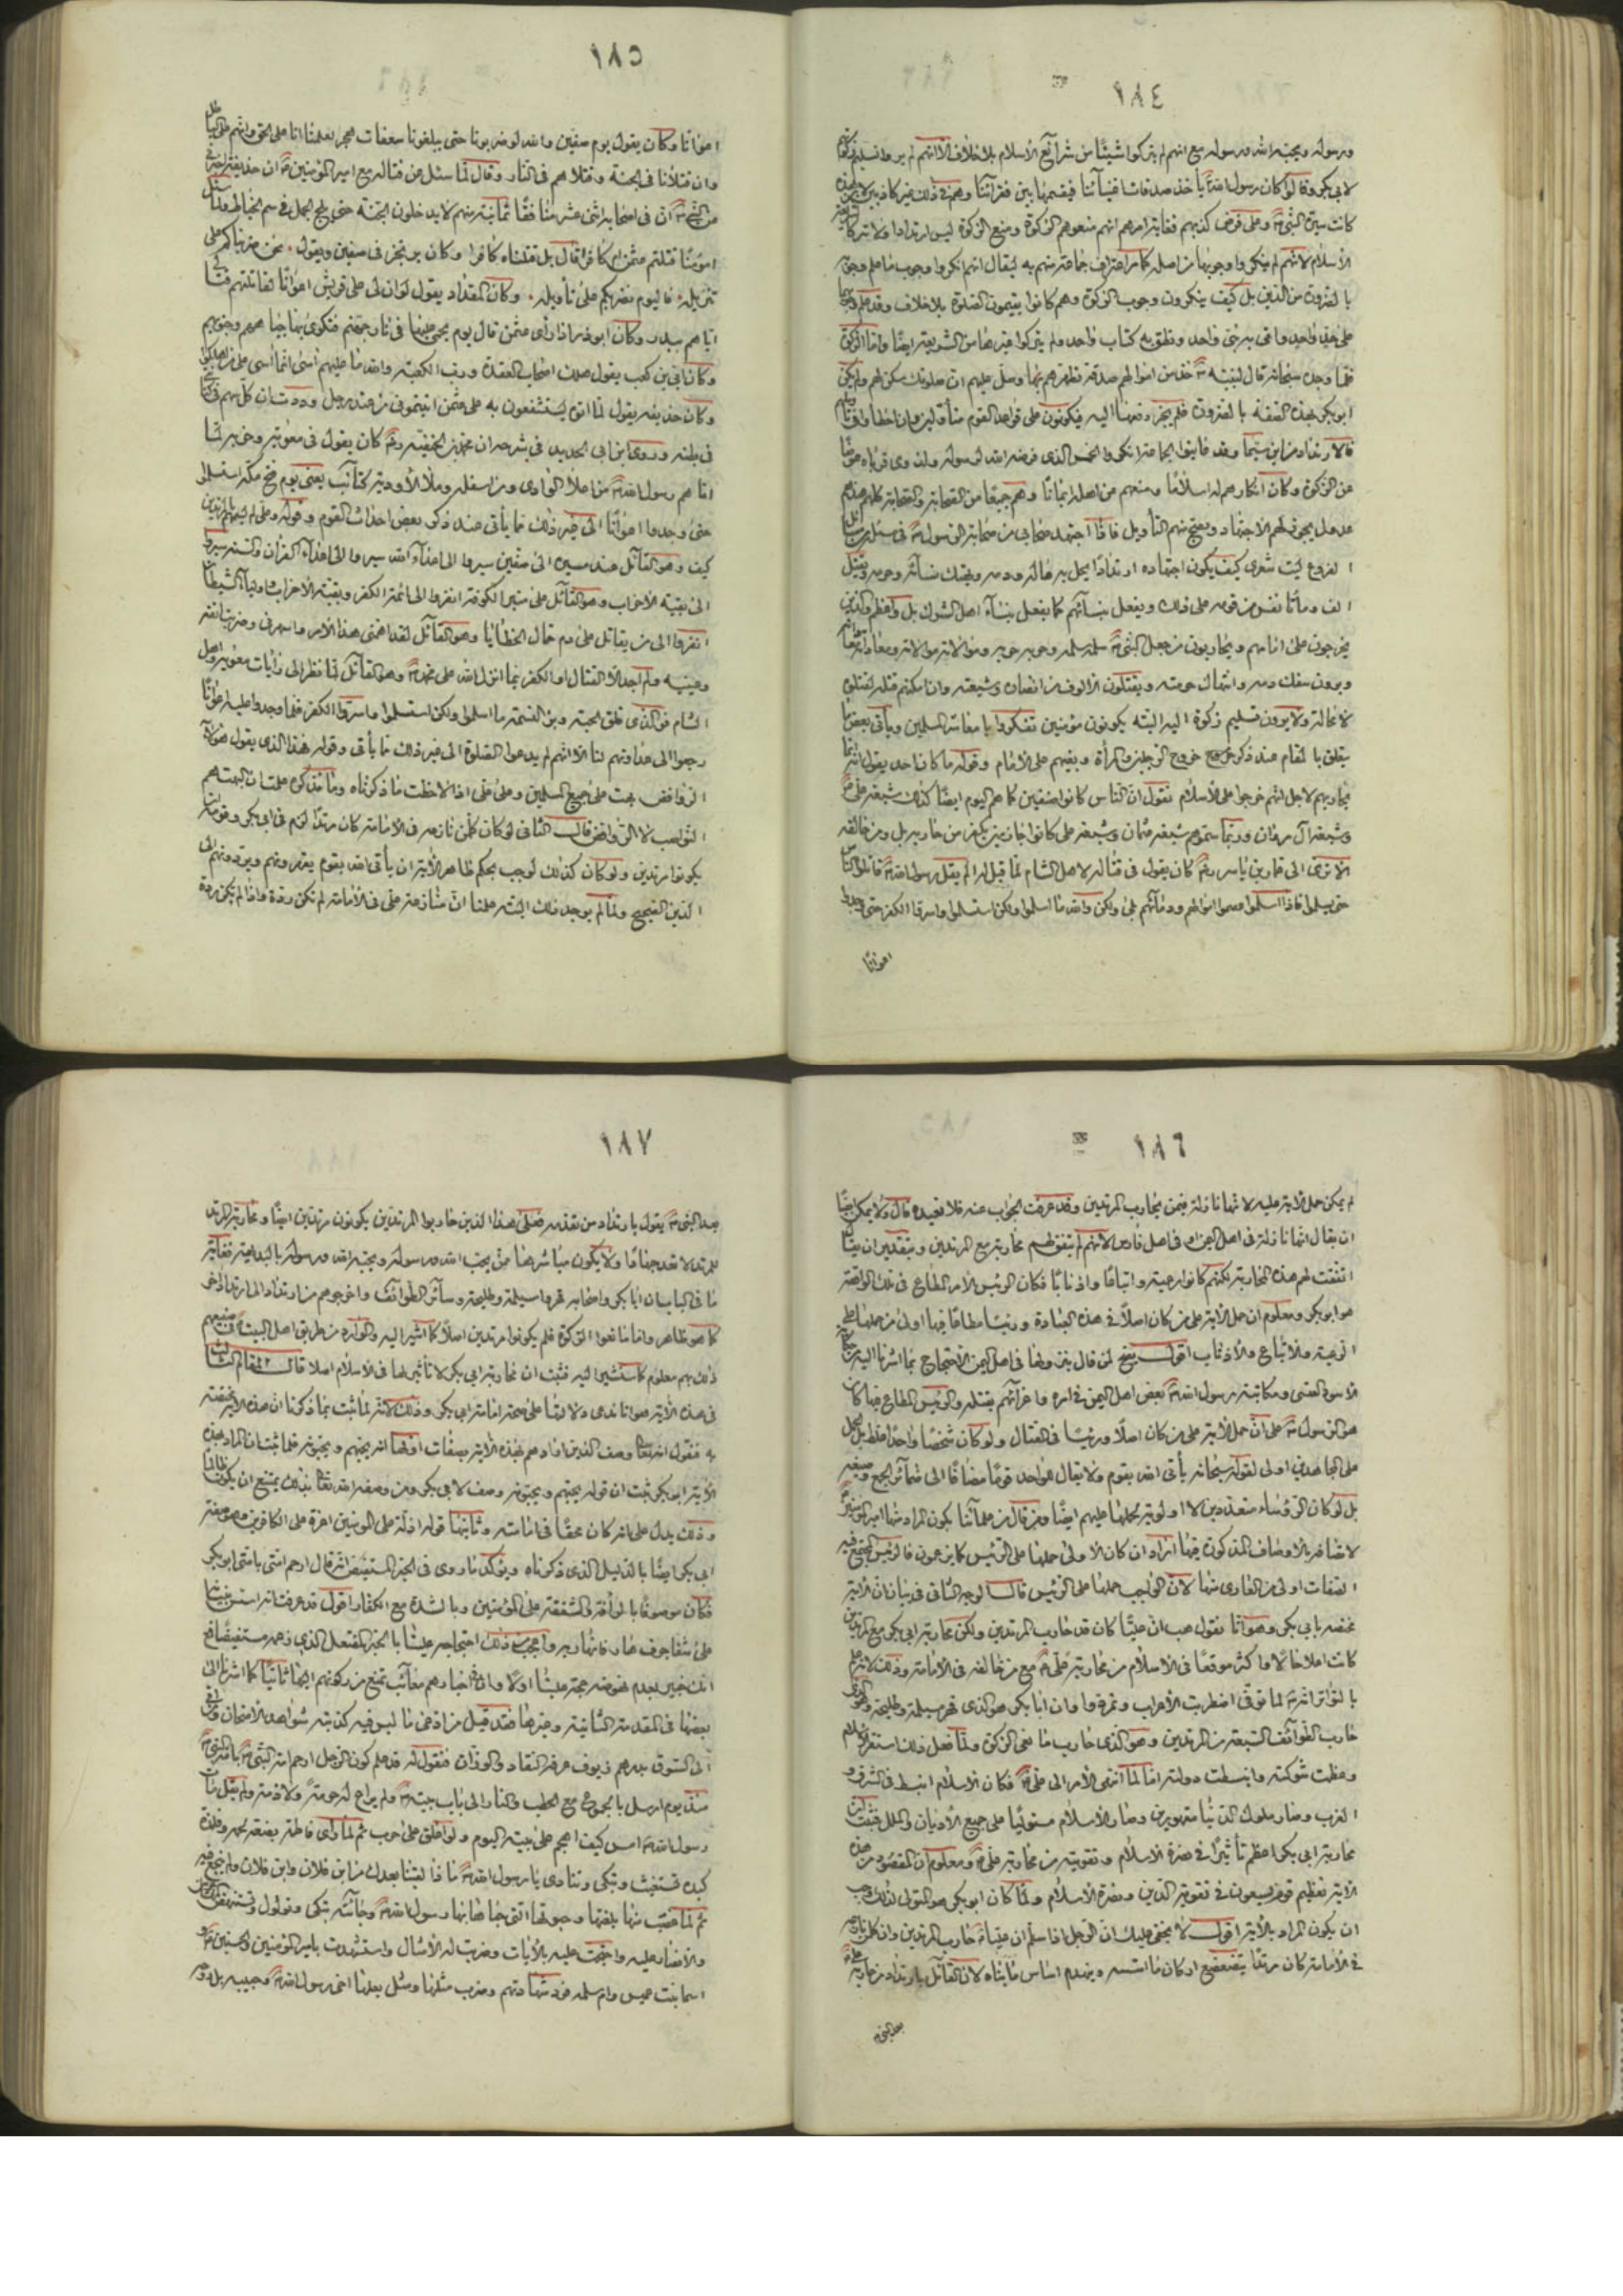 ١٨٤
ورسوله ويحبه الله ورسوله مع انهم لم يتركوا شيئًا من شرائع الاسلام بلا خلاف الا انهم لم يروا تسليم زكوتهم
لابي بكر وقالوا كان رسول الله ياخذ صدقات اغنيائنا فيقسمها بين فقرائنا وهم في ذلك غير كاذبين
كانت سيرة النبي وعلى فرض كذبهم فغاية امرهم انهم منعوهم الزكوة ومنع الزكوة ليس ارتدادا ولا تركا
الاسلام لانهم لم ينكروا وجوبها من اصله كما مر اعتراف جماعة منهم به ليقال انهم انكروا وجوب ما علم وجوبه
بالضرورة من الدين بل كيف ينكرون وجوب الزكوة وهم كانوا يقيمون الصلوة بلا خلاف وقد علم وجوبهما
على حد واحد واتى به نبي واحد ونطق به كتاب واحد ولم يتركوا غيرها من الشريعة ايضًا واما الزكوة
فلما وجدوا سبحانه قال لنبيه خذ من اموالهم صدقة تطهرهم بها وصل عليهم ان صلوتك سكن لهم ولم يكن
ابو بكر بهذه الصفة بالضرورة فلم يجز دفعها اليه فيكونون على قواعد القوم متأولين وان اخطاوا
فالارتداد من اين سيما وقد قابلوا الجماعة انكروا الخمس الذي فرضه الله لرسوله ولذوي قرباه عوضًا
عن الزكوة وكان انكارهم له اسلامًا ومنعهم من اهله ايمانًا وهم جميعًا من الصحابة والصحابة كلهم عندهم
عدول يجوز لهم الاجتهاد ويصح منهم التأويل فاذا اجتهد صحابي من صحابة الرسول في مسئلة من مسائل
الفروع ليت شعري كيف يكون اجتهاده ارتدادًا يحل به ماله ودمه ويهتك نسائه وحرمه ويقتل
الف ومائتا نفس من قومه على ذلك ويفعل بنسائهم كما يفعل بنساء اهل الشرك بل واعظم والذين
يخرجون على امامهم ويحاربون من جعل النبي سلمه سلمه وحربه حربه وموالاته موالاته ومعاداته
ويرون سفك دمه وانتهاك حرمته ويقتلون الالوف من انصاره وشيعته وان امكنهم قتله لقتلوه
لا محالة ولا يرون تسليم زكوة اليه البته يكونون مؤمنين تفكروا يا معاشر المسلمين ويأتي بعض ما
يتعلق بالمقام عند ذكر خروج الزبير والمرأة وبغيهم على الامام وقوله ما كان احد يقول انه انما
يحاربهم لاجل انهم خرجوا على الاسلام نقول ان الناس كانوا صنفين كما هم اليوم ايضًا كذلك شيعة علي
وشيعة آل مروان وربما سموهم شيعة عثمان وشيعة علي كانوا جازمين بكفر من حاربه بل ومن خالفه
الا ترى الى عمار بن ياسر كان يقول في قتاله لاهل الشام لما قيل له الم يقل رسول الله قاتلوا الناس
حتى يسلموا فاذا اسلموا عصموا اموالهم ودمائهم بلى ولكن والله ما اسلموا ولكن استسلموا واسروا الكفر حتى وجدوا
اعوانًا
١٨٥
اعوانًا وكان يقول يوم صفين والله لو ضربونا حتى يبلغونا سعفات هجر لعلمنا انا على الحق وانهم على الباطل
وان قتلانا في الجنة وقتلاهم في النار وقال لما سئل عن قتاله مع امير المؤمنين ان حذيفة اخبرني
عن النبي ان في اصحابه اثنى عشر منافقًا ثمانية منهم لا يدخلون الجنة حتى يلج الجمل في سم الخياط ولما سئل
امؤمنًا قتلتم عثمن ام كافرا قال بل قتلناه كافرا وكان يرتجز في صفين ويقول . نحن ضربناكم على
تنزيله . فاليوم نضربكم على تأويله . وكان المقداد يقول لو ان لي على قريش اعوانًا لقاتلتهم قتالي
اياهم ببدر وكان ابوذر اذا رأى عثمن قال يوم يحمى عليها في نار جهنم فتكوى بها جباههم وجنوبهم
وكان ابي بن كعب يقول هلك اصحاب العقدة ورب الكعبة والله ما عليهم آسى انما آسى على من اهلكوا
وكان حذيفة يقول لما اتوه يستشفعون به على عثمن اتيتموني من عند رجل وددت ان كل سهم في كنانتي
في بطنه وروى ابن ابي الحديد في شرحه ان محمد بن الحنفية كان يقول في معوية وحزبه لما
اتاهم رسول الله من اعلا الوادي ومن اسفله وملأ الاودية كتائب يعني يوم فتح مكة استسلموا
حتى وجدوا اعوانًا الى غير ذلك مما يأتي عند ذكر بعض احداث القوم وقوله وعلى لم يسمهم مرتدين
كيف وهو القائل عند مسيره الى صفين سيروا الى اعداء الله سيروا الى اعداء القرآن والسنن سيروا
الى بقية الاحزاب وهو القائل على منبر الكوفة انفروا الى ائمة الكفر وبقية الاحزاب واولياء الشيطان
انفروا الى من يقاتل على دم حمال الخطايا وهو القائل لقد اهمني هذا الامر واسهرني وضربت انفه
وعينيه ولم اجد الا القتال او الكفر بما انزل الله على محمد وهو القائل لما نظر الى رايات معوية واهل
الشام فوالذي فلق الحبة وبرئ النسمة ما اسلموا ولكن استسلموا واسروا الكفر فلما وجدوا عليه اعوانًا
رجعوا الى عداوتهم لنا الا انهم لم يدعوا الصلوة الى غير ذلك مما يأتي وقوله هذا الذي يقول هؤلاء
الروافض بهت على جميع المسلمين وعلى علي اذا لاحظت ما ذكرناه وما نذكره علمت ان البهت هم
النواصب لا الروافض قال الثاني لو كان كل من نازعه في الامامة كان مرتدًا لزم في ابي بكر وقومه ان
يكونوا مرتدين ولو كان كذلك لوجب بحكم ظاهر الآية ان يأتي الله بقوم يقهرونهم ويردونهم الى
الدين الصحيح ولما لم يوجد ذلك البتة علمنا ان منازعة علي في الامامة لم تكن ردة واذا لم يكن ردة
١٨٦
لم يمكن حمل الآية عليه لانها نازلة فيمن يحارب المرتدين وقد عرفت الجواب عنه فلا نعيده قال ولا يمكن ايضًا
ان يقال انها نازلة في اهل اليمن او في اهل فارس لانهم لم يتفق لهم محاربة مع المرتدين وبتقدير ان يقال
اتفقت لهم هذه المحاربة لكنهم كانوا رعية واتباعًا واذنابًا فكان الرئيس الآمر المطاع في تلك الواقعة
هو ابو بكر ومعلوم ان حمل الآية على من كان اصلًا في هذه العبادة ورئيسًا مطاعًا فيها اولى من حملها على
الرعية والاتباع والاذناب اقول يتجه لمن قال بنزولها في اهل اليمن الاحتجاج بما اشرنا اليه من
الاسود العنسي ومكاتبة رسول الله بعض اهل اليمن في امره واغرائهم بقتله والرئيس المطاع فيها كان
هو الرسول على ان حمل الآية على من كان اصلًا ورئيسًا في القتال ولو كان شخصًا واحدًا غلط بل الحمل
على المجاهدين اولى لقوله سبحانه يأتي الله بقوم ولا يقال للواحد قومًا مضافًا الى ضمائر الجمع وصيغه
بل لو كان الرؤساء متعددين لا اولوية بحملها عليهم ايضًا ومن قال من علمائنا بكون المراد بها امير المؤمنين
لاتصافه بالاوصاف المذكورة فيها اراد ان كان الاولى حملها على الرئيس كما يزعمون فالرئيس المجتمع فيه
الصفات اولى من العاري منها لان الواجب حملها على الرئيس قال الوجه الثاني في بيان ان الآية
مختصة بابي بكر وهو انا نقول هب ان عليًا كان قد حارب المرتدين ولكن محاربة ابي بكر مع المرتدين
كانت اعلا حالًا واكثر موقعًا في الاسلام من محاربة علي مع من خالفه في الامامة وذلك لانه علم
بالتواتر انه لما توفى اضطربت الاعراب وتمردوا وان ابا بكر هو الذي قهر مسيلمة وطليحة وهو الذي
حارب الطوائف السبعة من المرتدين وهو الذي حارب مانعي الزكوة ولما فعل ذلك استقر الاسلام
وعظمت شوكته وانبسطت دولته اما لما انتهى الامر الى علي فكان الاسلام انبسط في الشرق و
الغرب وصار ملوك الدنيا مقهورين وصار الاسلام مستوليًا على جميع الاديان والملل فثبت ان
محاربة ابي بكر اعظم تأثيرًا في نصرة الاسلام وتقويته من محاربة علي ومعلوم ان المقصود من هذه
الآية تعظيم قوم يسعون في تقوية الدين ونصرة الاسلام ولما كان ابو بكر هو المتولى لذلك وجب
ان يكون المراد بالآية اقول لا يخفى عليك ان الرجل اذا سلم ان عليًا حارب المرتدين وان كل من نازعه
في الامامة كان مرتدًا يتضعضع اركان ما اسسه وينهدم اساس ما بناه لان القائل بارتداد من حاربه
بعد النبي
١٨٧
بعد النبي يقول بارتداد من تقدمه فعلى هذا الذين حاربوا المرتدين يكونون مرتدين ايضًا ومحاربة المرتد
للمرتد لا تعد جهادًا ولا يكون مباشرها ممن يحب الله ورسوله ويحبه الله ورسوله بالبداهة فغاية
ما في الباب ان ابا بكر واصحابه قهروا مسيلمة وطليحة وسائر الطوائف واخرجوهم من ارتداد الى ارتداد آخر
كما هو ظاهر واما مانعوا الزكوة فلم يكونوا مرتدين اصلًا كما اشير اليه والوارد من طريق اهل البيت في
ذلك معلوم كما سنشير اليه فثبت ان محاربة ابي بكر لا تأثير لها في الاسلام اصلا قال المقام الثالث
في هذه الآية هو انا ندعي دلالتها على صحة امامة ابي بكر وذلك لانه لما ثبت بما ذكرنا ان هذه الآية مختصة
به فنقول انه تعالى وصف الذين ارادهم بهذه الآية بصفات اولها انه يحبهم ويحبونه فلما ثبت ان المراد بهذه
الآية ابو بكر ثبت ان قوله يحبهم ويحبونه وصف لابي بكر ومن وصفه الله تعالى بذلك يمتنع ان يكون ظالمًا
وذلك يدل على انه كان محقًا في امامته وثانيها قوله اذلة على المؤمنين اعزة على الكافرين وهو صفة
ابي بكر ايضًا بالدليل الذي ذكرناه ويؤكده ما روى في الخبر المستفيض انه قال ارحم امتي بامتي ابو بكر
فكان موصوفًا بالرأفة والشفقة على المؤمنين وبالشدة مع الكفار اقول قد عرفت انه اسس بنيانه
على شفا جرف هار فانهار به واعجب من ذلك احتجاجه علينا بالخبر المفتعل الذي زعمه مستفيضًا مع
انك خبير بعدم نهوضه حجة علينا اولًا وان في اخبارهم معائب تمنع من ركونهم اليها ثانيًا كما اشرنا الى
بعضها في المقدمة الثانية وغيرها فقد قيل من ادعى ما ليس فيه كذبته شواهد الامتحان ومن
اتى السوق بدرهم زيوف عرفه النقاد والوزان فنقول له قد علم كون الرجل ارحم امة النبي بامة النبي
منذ يوم ارسل بالجموع مع الحطب والنار الى باب بيته ولم يراع له حرمة ولا ذمة ولم يقل مات
رسول الله امس كيف اهجم على بيته اليوم ولو اغلق على حرب ثم لما رأى فاطمة بضعة لحمه وفلذة
كبده تستغيث وتبكي وتنادي يا رسول الله ماذا لقينا بعدك من ابن فلان وابن فلان ولم
ثم لما غصب منها بلغتها وحبوتها التي حباها بها رسول الله وجائته تبكي وتولول وتستنهض
والانصار عليه واحتجت عليه بالآيات وضربت له الامثال واستشهدت بامير المؤمنين والحسنين و
اسما بنت عميس وام سلمه فرد شهادتهم وضرب مثلها ومثل بعلها اخي رسول الله وحبيبه